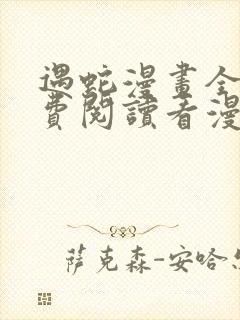 遇蛇漫畫全
費閱讀者漫
萨克森-安哈